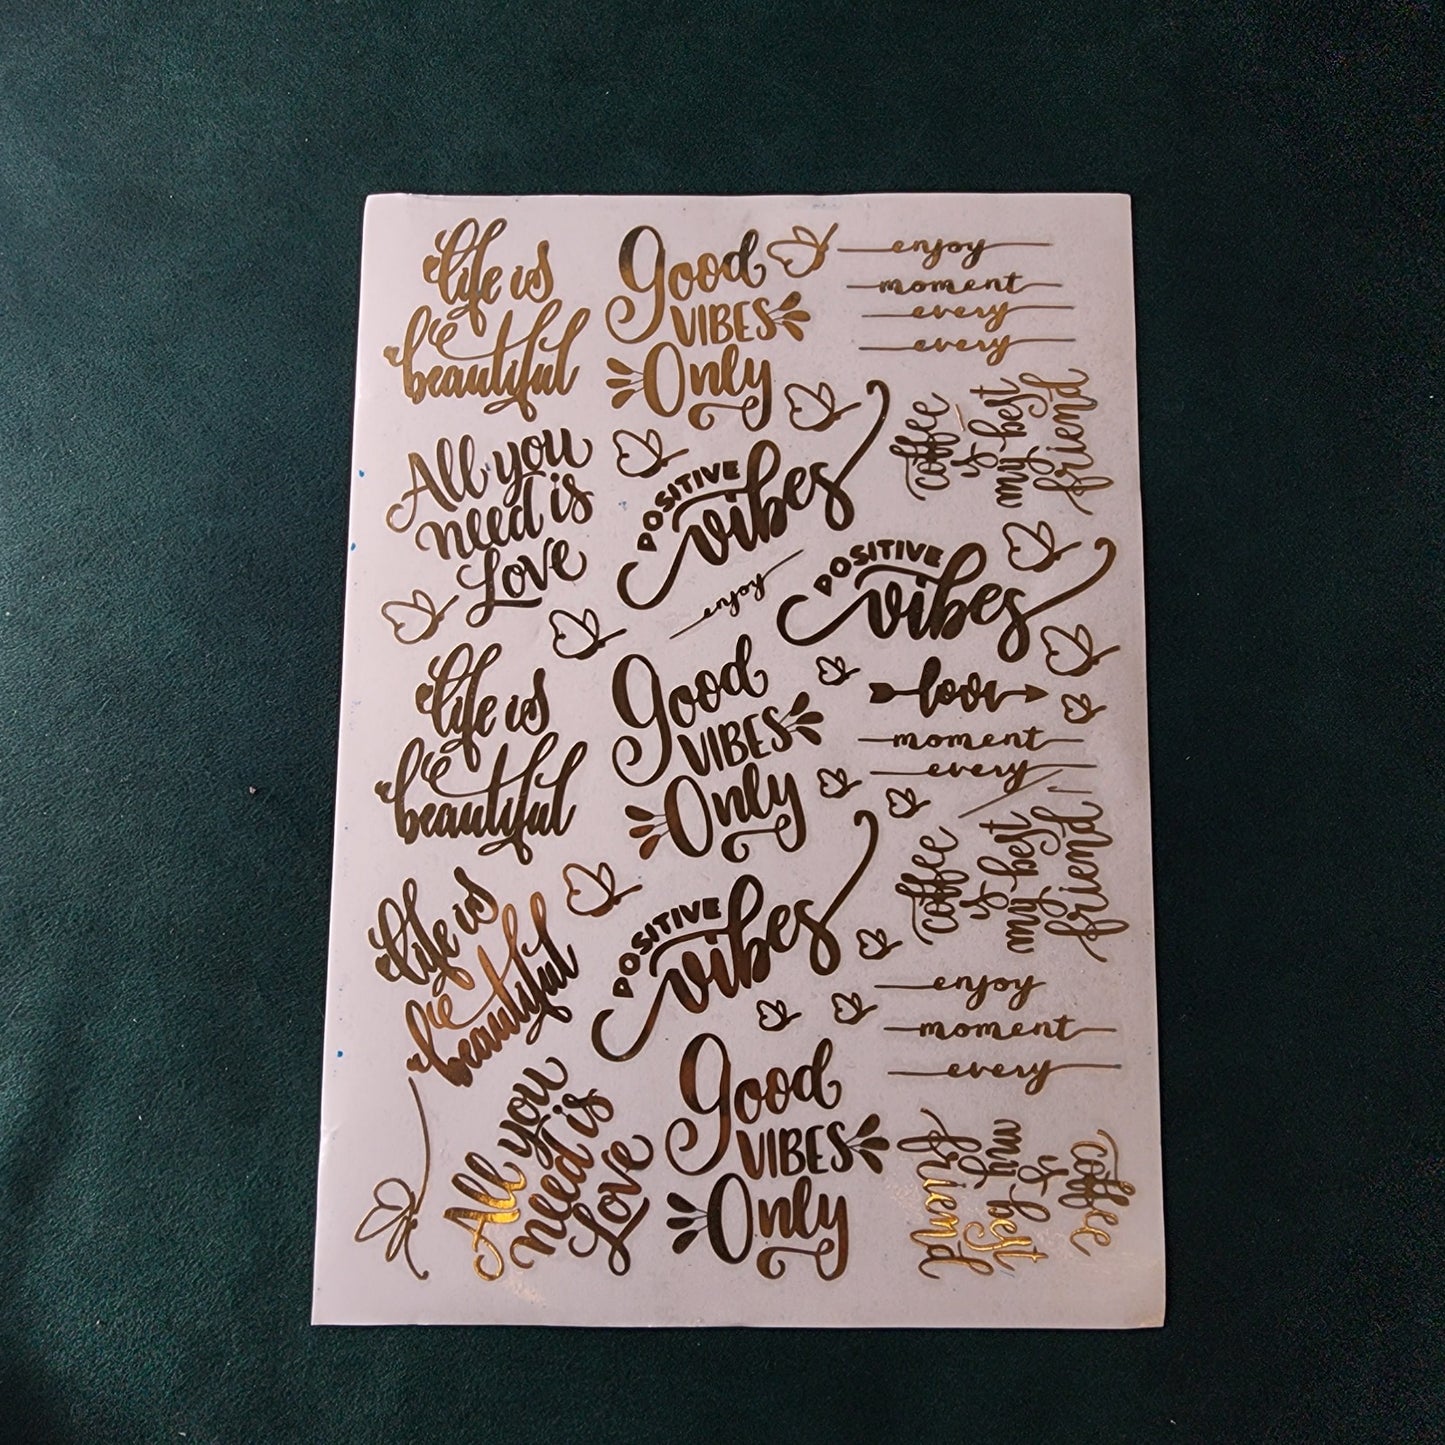 life is
beautiful
Good
VIBES
Only
enjoy
moment
every
every
All you
need is
Love
POSITIVE
vibes
coffee
is
my best
friend
enjoy
POSITIVE
vibes
life is
beautiful
Good
VIBES
Only
love
moment
every
coffee
is
my best
friend
life is
beautiful
POSITIVE
vibes
enjoy
moment
every
All you
need is
Love
Good
VIBES
Only
coffee
is
my best
friend